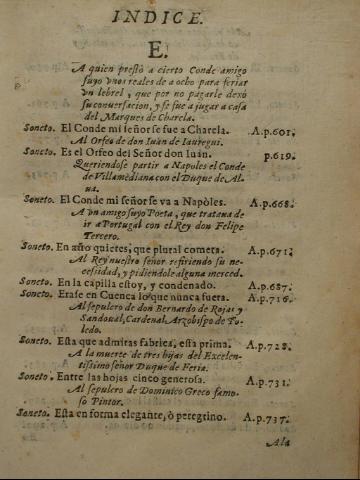 INDICE.
E.
A quien prestò a cierto Conde amigo
suyo vnos reales de a ocho para feriar
vn lebrel, que por no pagarle dexò
su conuersacion, y se fue a jugar a casa
del Marques de Charela.
Soneto. El Conde mi señor se fue a Charela. A.p.601.
Al Orfeo de don Iuan de Iauregui.
Soneto. Es el Orfeo del Señor don Iuan. p.619.
Queriendose partir a Napoles el Conde
de Villamediana con el Duque de Al
ua.
Soneto. El Conde mi señor se va a Napòles. A.p.668.
A vn amigo suyo Poeta, que trataua de
ir a Portugal con el Rey don Felipe
Tercero.
Soneto. En año quieres, que plural cometa. A.p.671.
Al Rey nuestro señor refiriendo su ne-
cessidad, y pidiendole alguna merced.
Soneto. En la capilla estoy, y condenado. A.p.687.
Soneto. Erase en Cuenca lo que nunca fuera. A.p.716.
Al sepulcro de don Bernardo de Rojas y
Sandoual, Cardenal, Arzobispo de To-
ledo.
Soneto. Esta que admiras fabrica, esta prima. A.p.728.
A la muerte de tres hijas del Excelen-
tissimo señor Duque de Feria.
Soneto. Entre las hojas cinco generosa. A.p.731.
Al sepulcro de Dominico Greco famo-
so Pintor.
Soneto. Esta en forma elegante, ò peregrino. A.p.737.
Ala